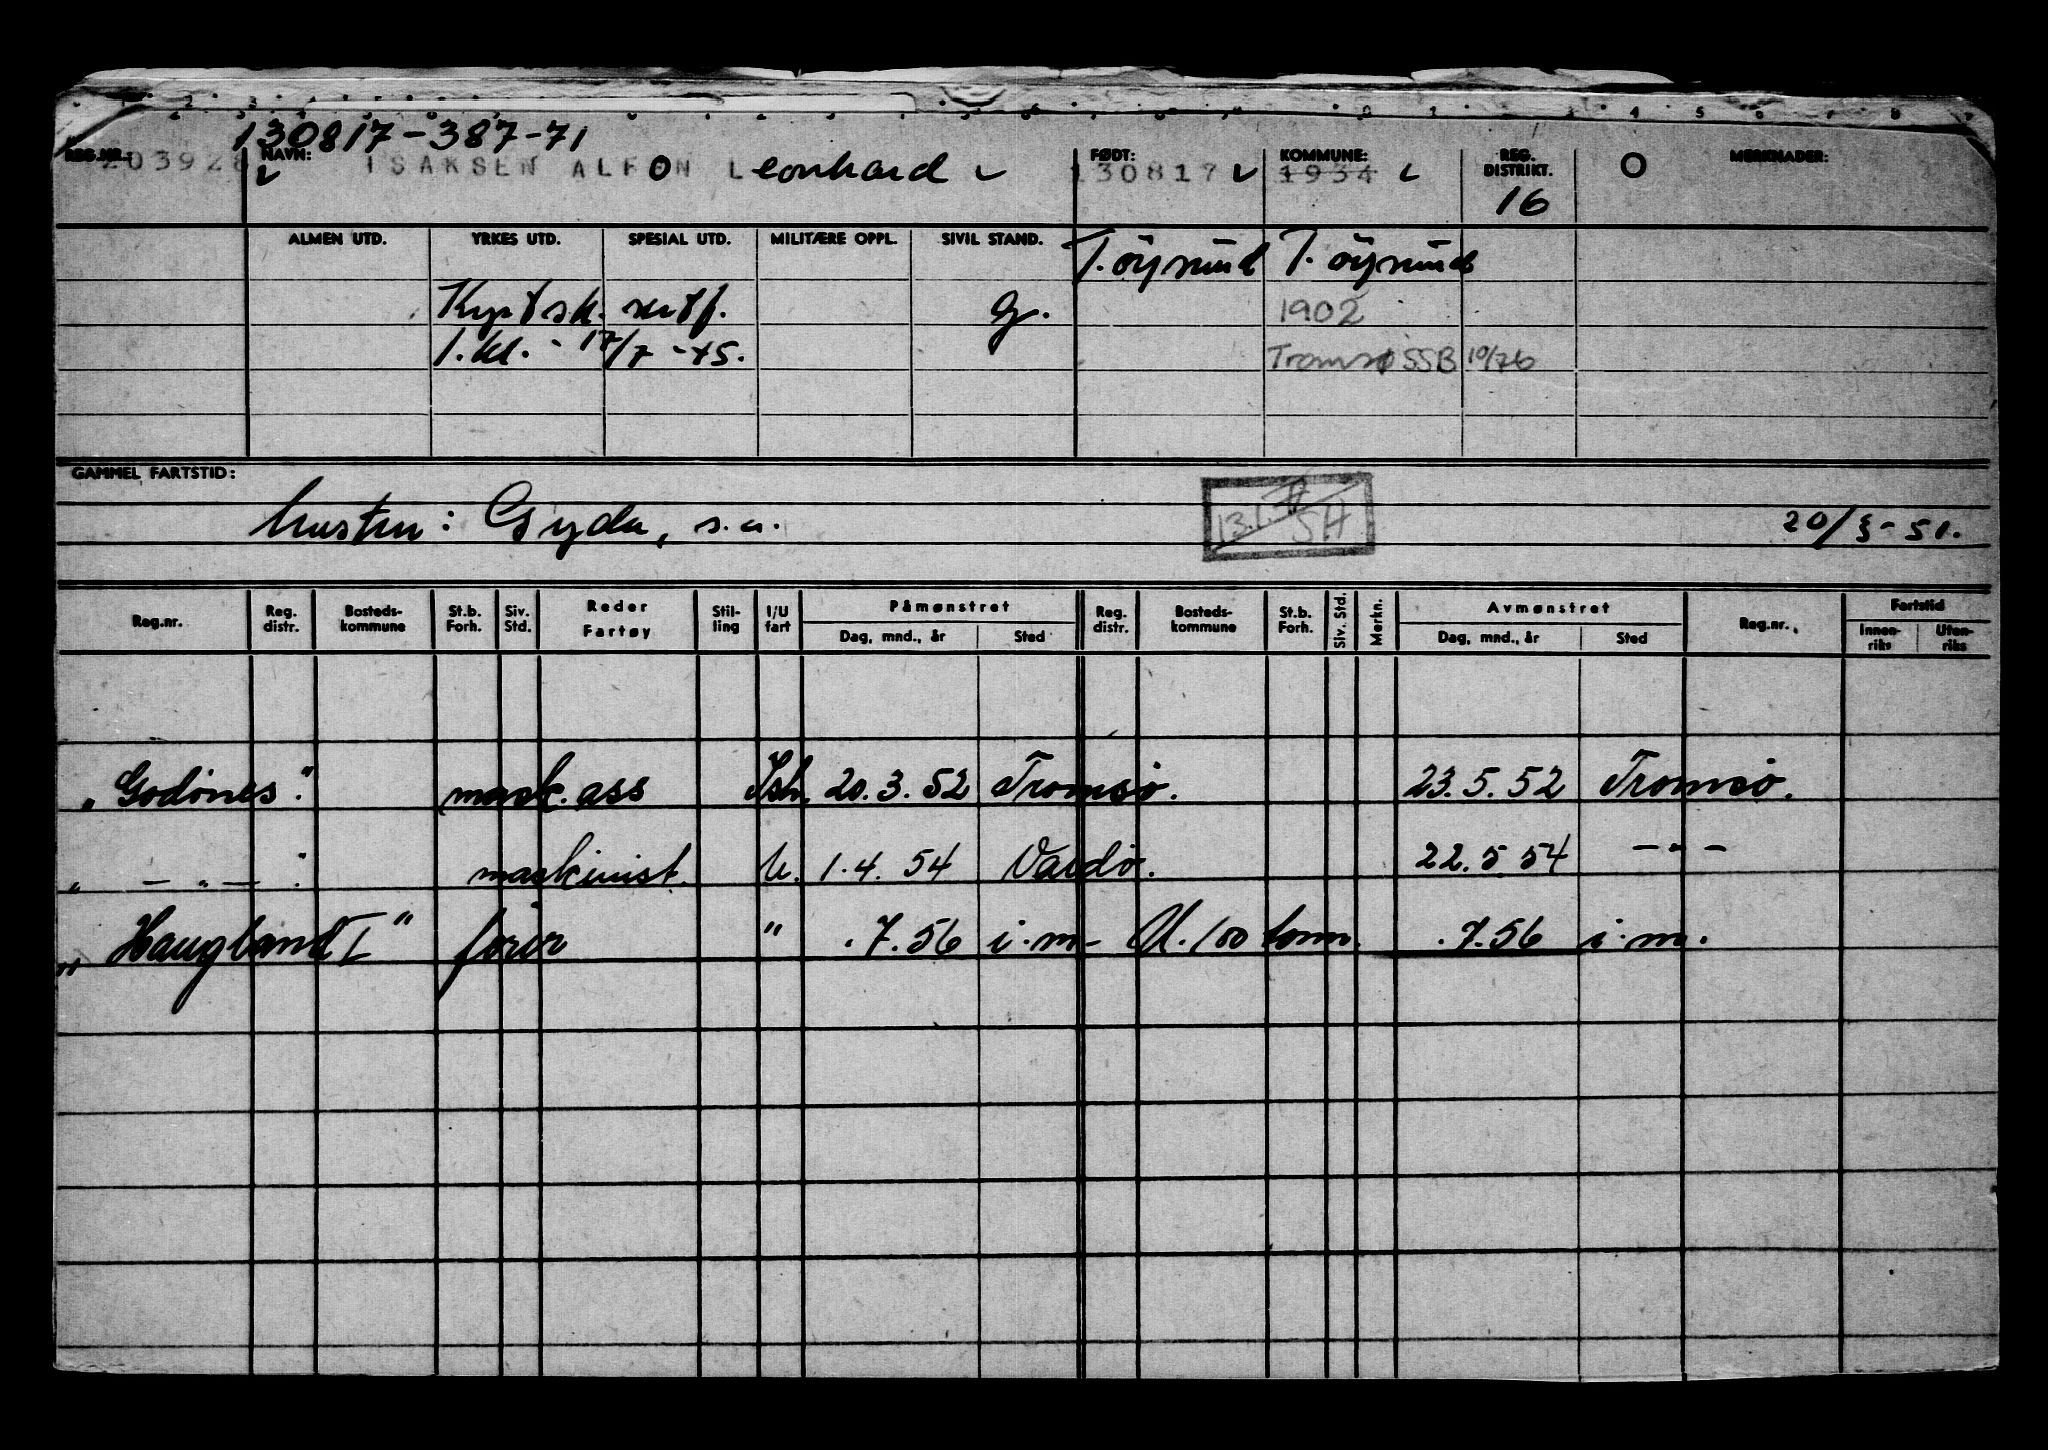 130817-387-71
REG.NR.: 203928 NAVN: ISAKSEN ALFON Leonhard FØDT: 130817 KOMMUNE: 1934 REG. DISTRIKT. 16 O MERKNADER:
ALMEN UTD. YRKES UTD. SPESIAL UTD. MILITÆRE OPPL. SIVIL STAND. T.öysund T.öysund
Kystsk. sertf. G. 1902
1.kl. - 17/7 -45. Tromsø SSB 10/76
GAMMEL FARTSTID:
hustru: Gyda, s.a. 13.1. 54 20/3-51.
Reg.nr. Reg. distr. Bosteds-kommune St.b. Forh. Siv. Std. Reder Fartøy Stil-ling I/U fart Påmønstret Dag, mnd., år Sted Reg. distr. Bosteds-kommune St.b. Forh. Siv. Std. Merkn. Avmønstret Dag, mnd., år Sted Reg.nr. Fartstid Innen-riks Uten-riks
„Godönes." mask.ass Ish. 20.3.52 Tromsö. 23.5.52 Tromsö.
„ — „ — " maskinist. U. 1.4.54 Vardö. 22.5.54 — " —
„Haugland I" förer " .7.56 i.m- U.100 tonn. .7.56 i.m.